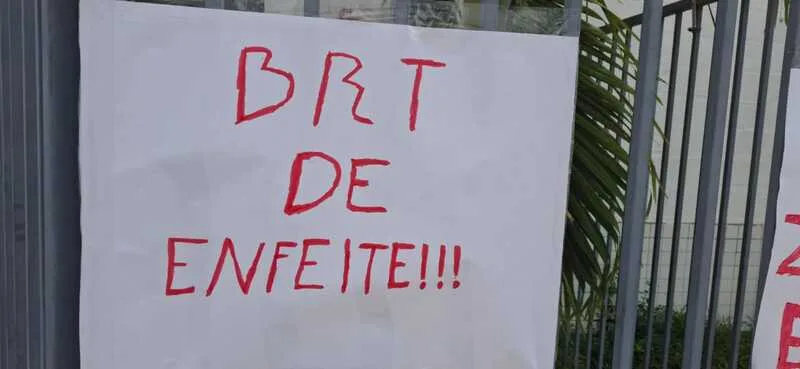 BRT
DE
ENFEITE!!!